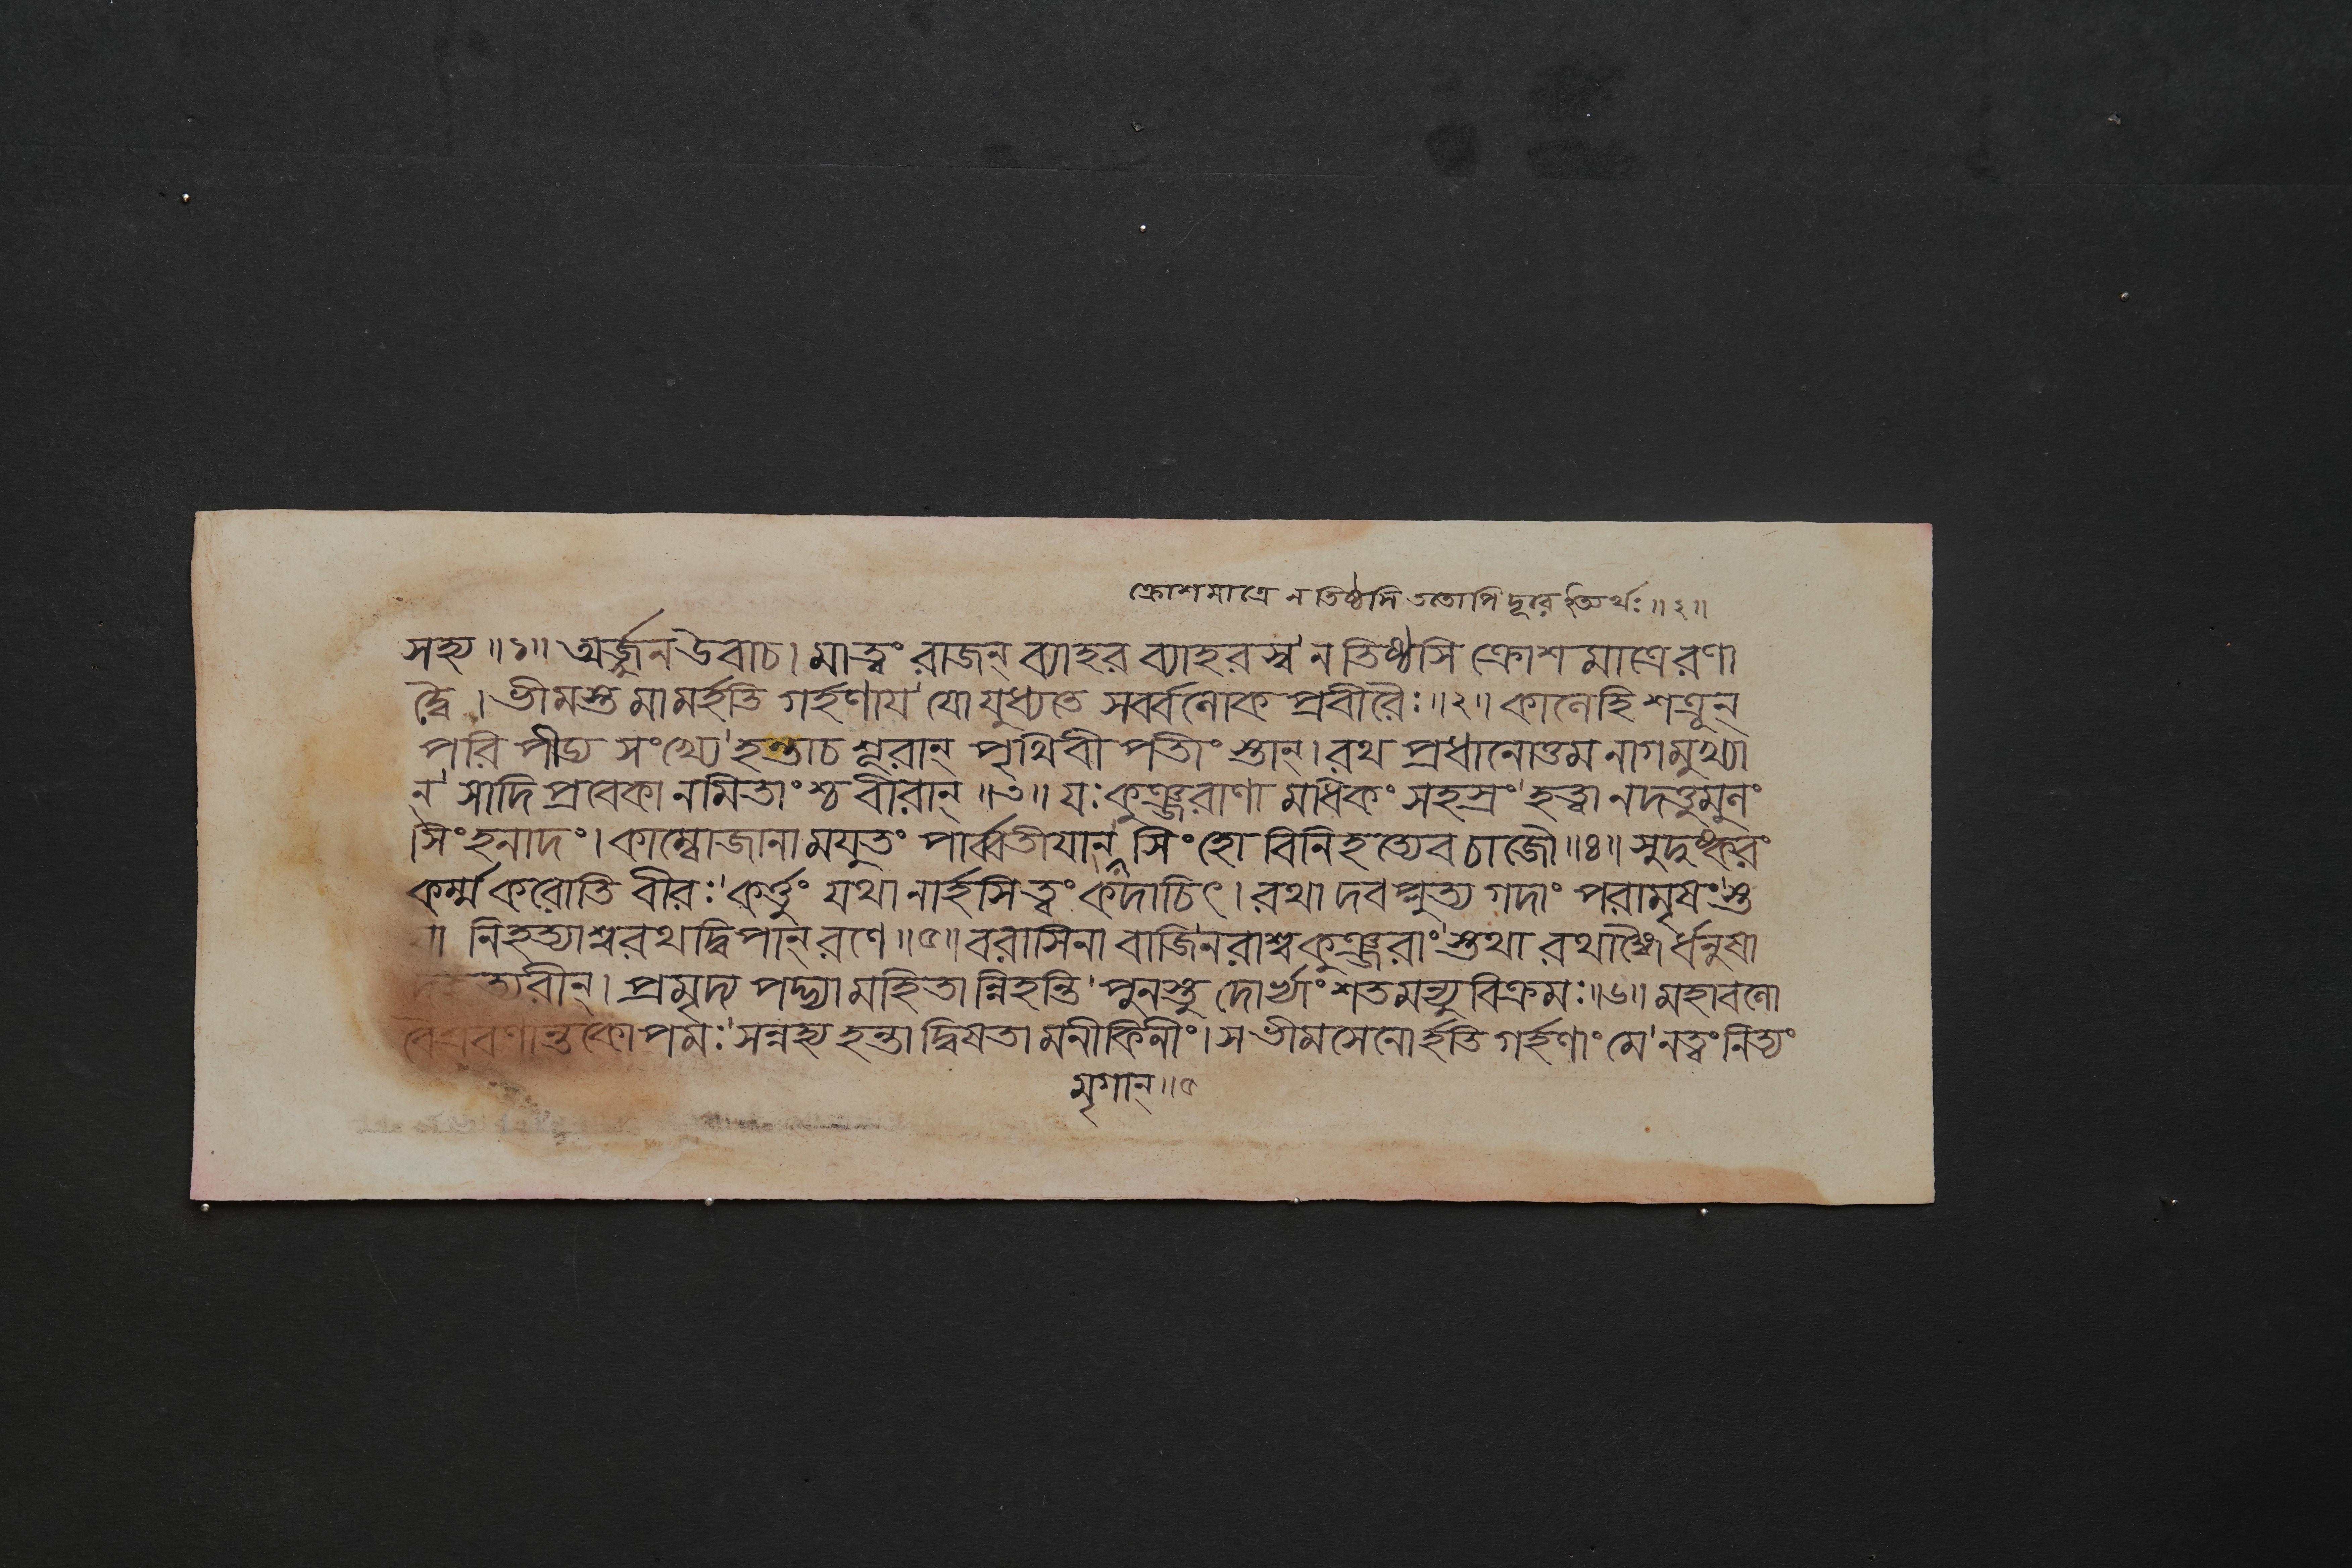 ক্রোশমাত্রে ন তিষ্ঠসি ততোপি দূরে ইত্যর্থঃ ॥ ২ ॥
সহ্য ॥ ১ ॥ অর্জ্জুন উবাচ । মা ত্বং রাজন্ ব্যাহর ব্যাহরস্ব ' ন তিষ্ঠসি ক্রোশমাত্রে রণা
দ্বৈ । ভীমস্তু মামর্হতি গর্হণায ' যো যুধ্যতে সর্ব্বলোকপ্রবীরৈঃ ॥ ২ ॥ কালে হি শত্রূন্
পরিপীড্য সংখ্যে ' হন্তা চ শূরান্ পৃথিবীপতীংস্তান্ । রথপ্রধানোত্তমনাগমুখ্যা
ন্ ' সাদিপ্রবেকানমিতাংশ্চ বীরান্ ॥ ৩ ॥ যঃ কুঞ্জরাণামধিকং সহস্রং ' হত্বা নদত্তুমুলং
সিংহনাদং । কাম্বোজানামযুতং পার্ব্বতীযান্ ' সিংহো বিনিহত্যেব চাজৌ ॥ ৪ ॥ সুদুষ্করং
কর্ম্ম করোতি বীরঃ ' কর্ত্তুং যথা নার্হসি ত্বং কদাচিৎ । রথাদবপ্লুত্য গদাং পরামৃষং ' স্ত
যা নিহত্যাশ্বরথদ্বিপান্ রণে ॥ ৫ ॥ বরাসিনা বাজিনরাশ্বকুঞ্জরাং ' স্তথা রথাঙ্গৈর্ধনুষা
ত্যরীন্ । প্রমৃদ্য পদ্ভ্যামহিতান্নিহন্তি ' পুনস্তু দোর্ভ্যাং শতমন্যুবিক্রমঃ ॥ ৬ ॥ মহাবলো
বৈশ্রবণান্তকোপমঃ ' সন্নহ্য হন্তা দ্বিষতামনীকিনীং । স ভীমসেনোর্হতি গর্হণাং মে ' ন ত্বং নিত্যং
মৃগান্ ॥ ৫